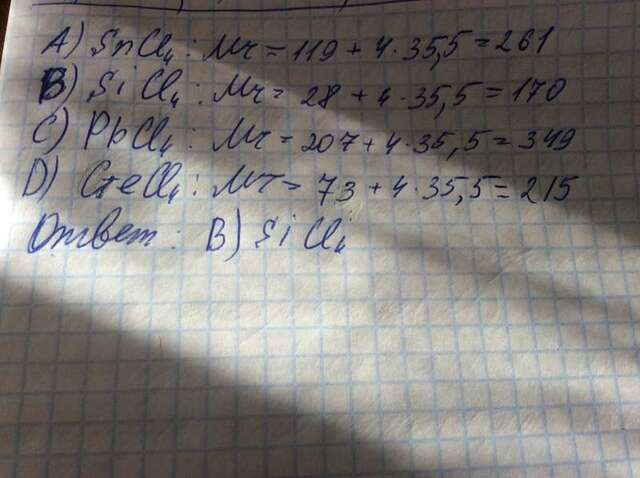 A) SnCl₄ : Mr = 119 + 4·35,5 = 261
B) SiCl₄ : Mr = 28 + 4·35,5 = 170
C) PbCl₄ : Mr = 207 + 4·35,5 = 349
D) GeCl₄ : Mr = 73 + 4·35,5 = 215
Ответ : B) SiCl₄